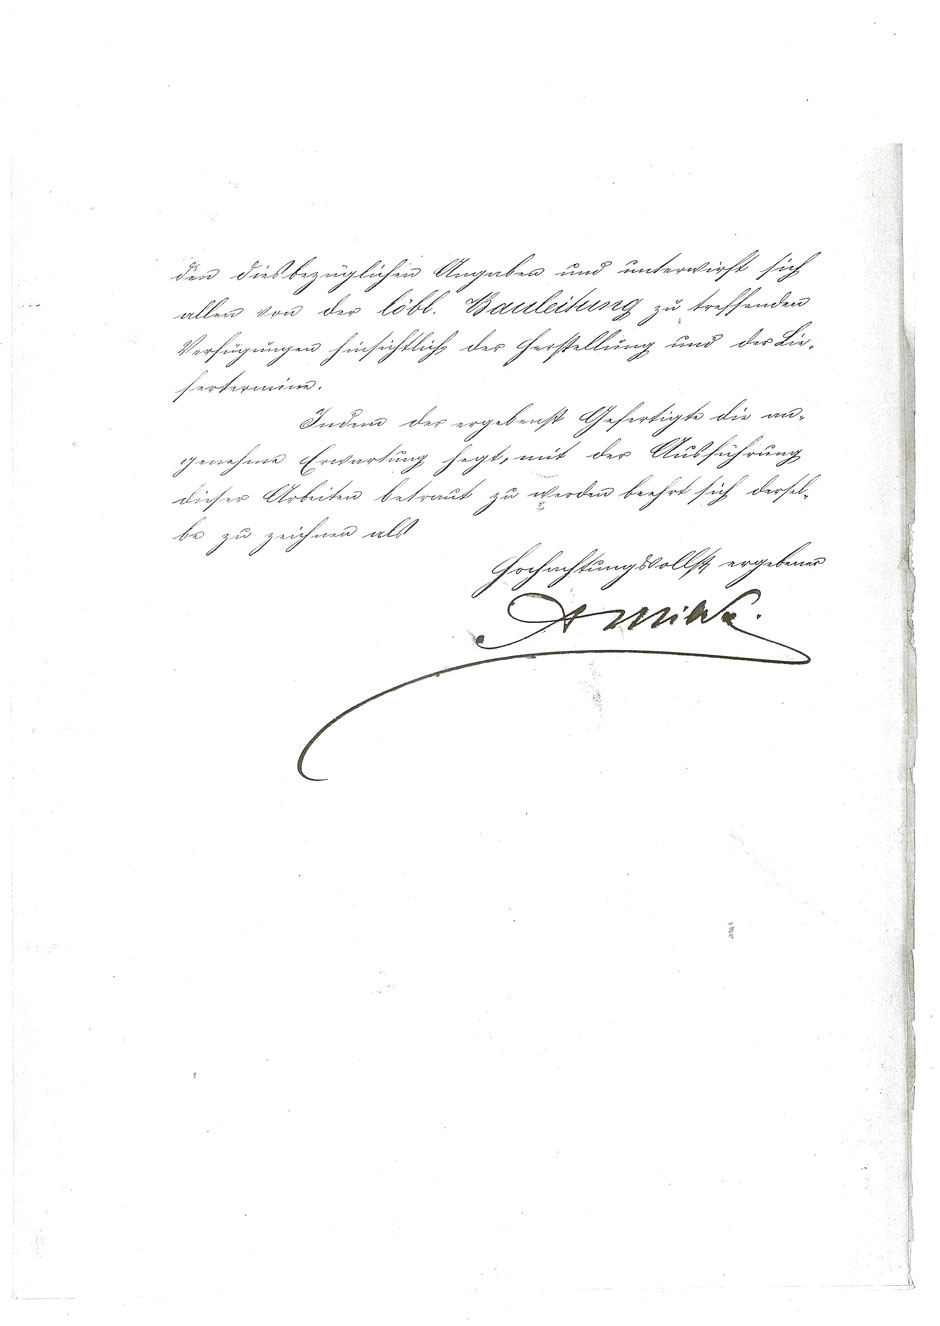 den diesbezüglichen Angaben und unterwirft sich
allen von der löbl. Bauleitung zu treffenden
Verfügungen hinsichtlich der Herstellung und der Lie-
fertermine.
Indem der ergebenst Gefertigte die an-
genehme Erwartung hegt, mit der Ausführung
dieser Arbeiten betraut zu werden beehrt sich dersel-
be zu zeichnen als
Hochachtungsvollst ergebener